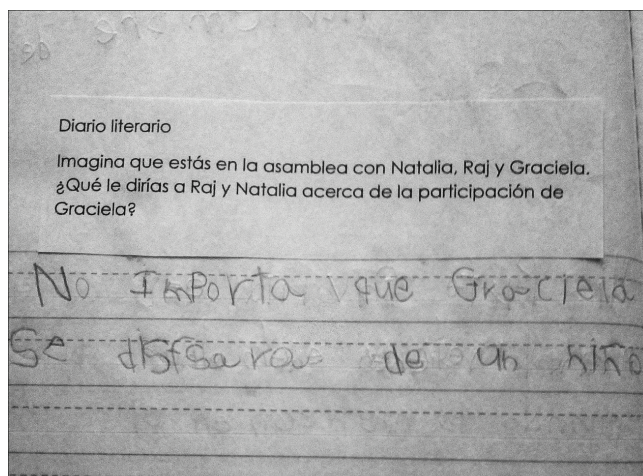 Diario literario
Imagina que estás en la asamblea con Natalia, Raj y Graciela.
¿Qué le dirías a Raj y Natalia acerca de la participación de
Graciela?
No Importa que Graciela
Se disfsara de un niño